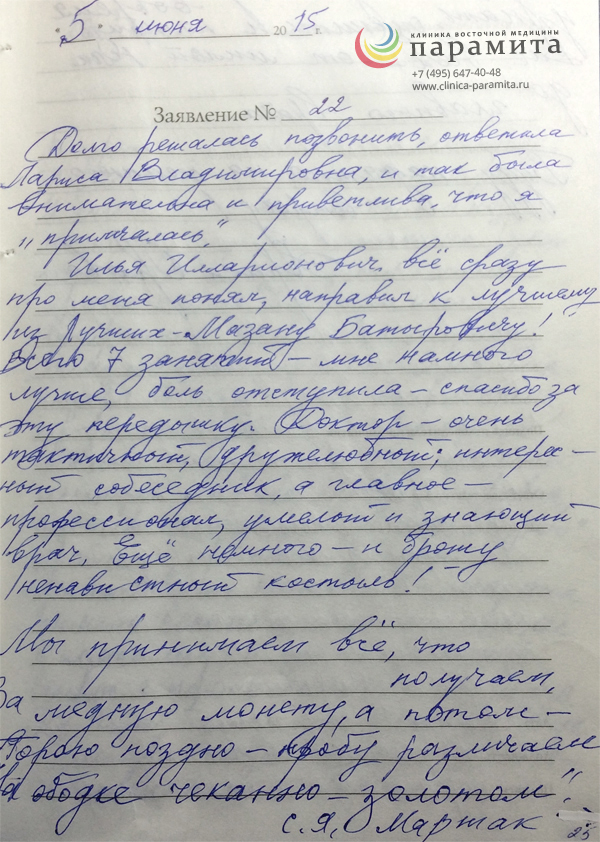 5 июня 2015 г.
КЛИНИКА ВОСТОЧНОЙ МЕДИЦИНЫ
ПАРАМИТА
+7 (495) 647-40-48
www.clinica-paramita.ru
Заявление № 22
Долго решалась позвонить, ответила
Лариса Владимировна, и так была
внимательна и приветлива, что я
„примчалась."
Илья Илларионович всё сразу
про меня понял, направил к лучшему
из Лучших - Мазану Батыровичу!
Всего 7 занятий - мне намного
лучше, боль отступила - спасибо за
эту передышку. Доктор - очень
тактичный, дружелюбный; интерес-
ный собеседник, а главное -
профессионал, умелый и знающий
врач. Ещё немного - и брошу
ненавистный костыль!
Мы принимаем всё, что
получаем,
За медную монету, а потом -
Порою поздно - пробу различаем
На ободке чеканно - золотом".
С. Я. Маршак
25